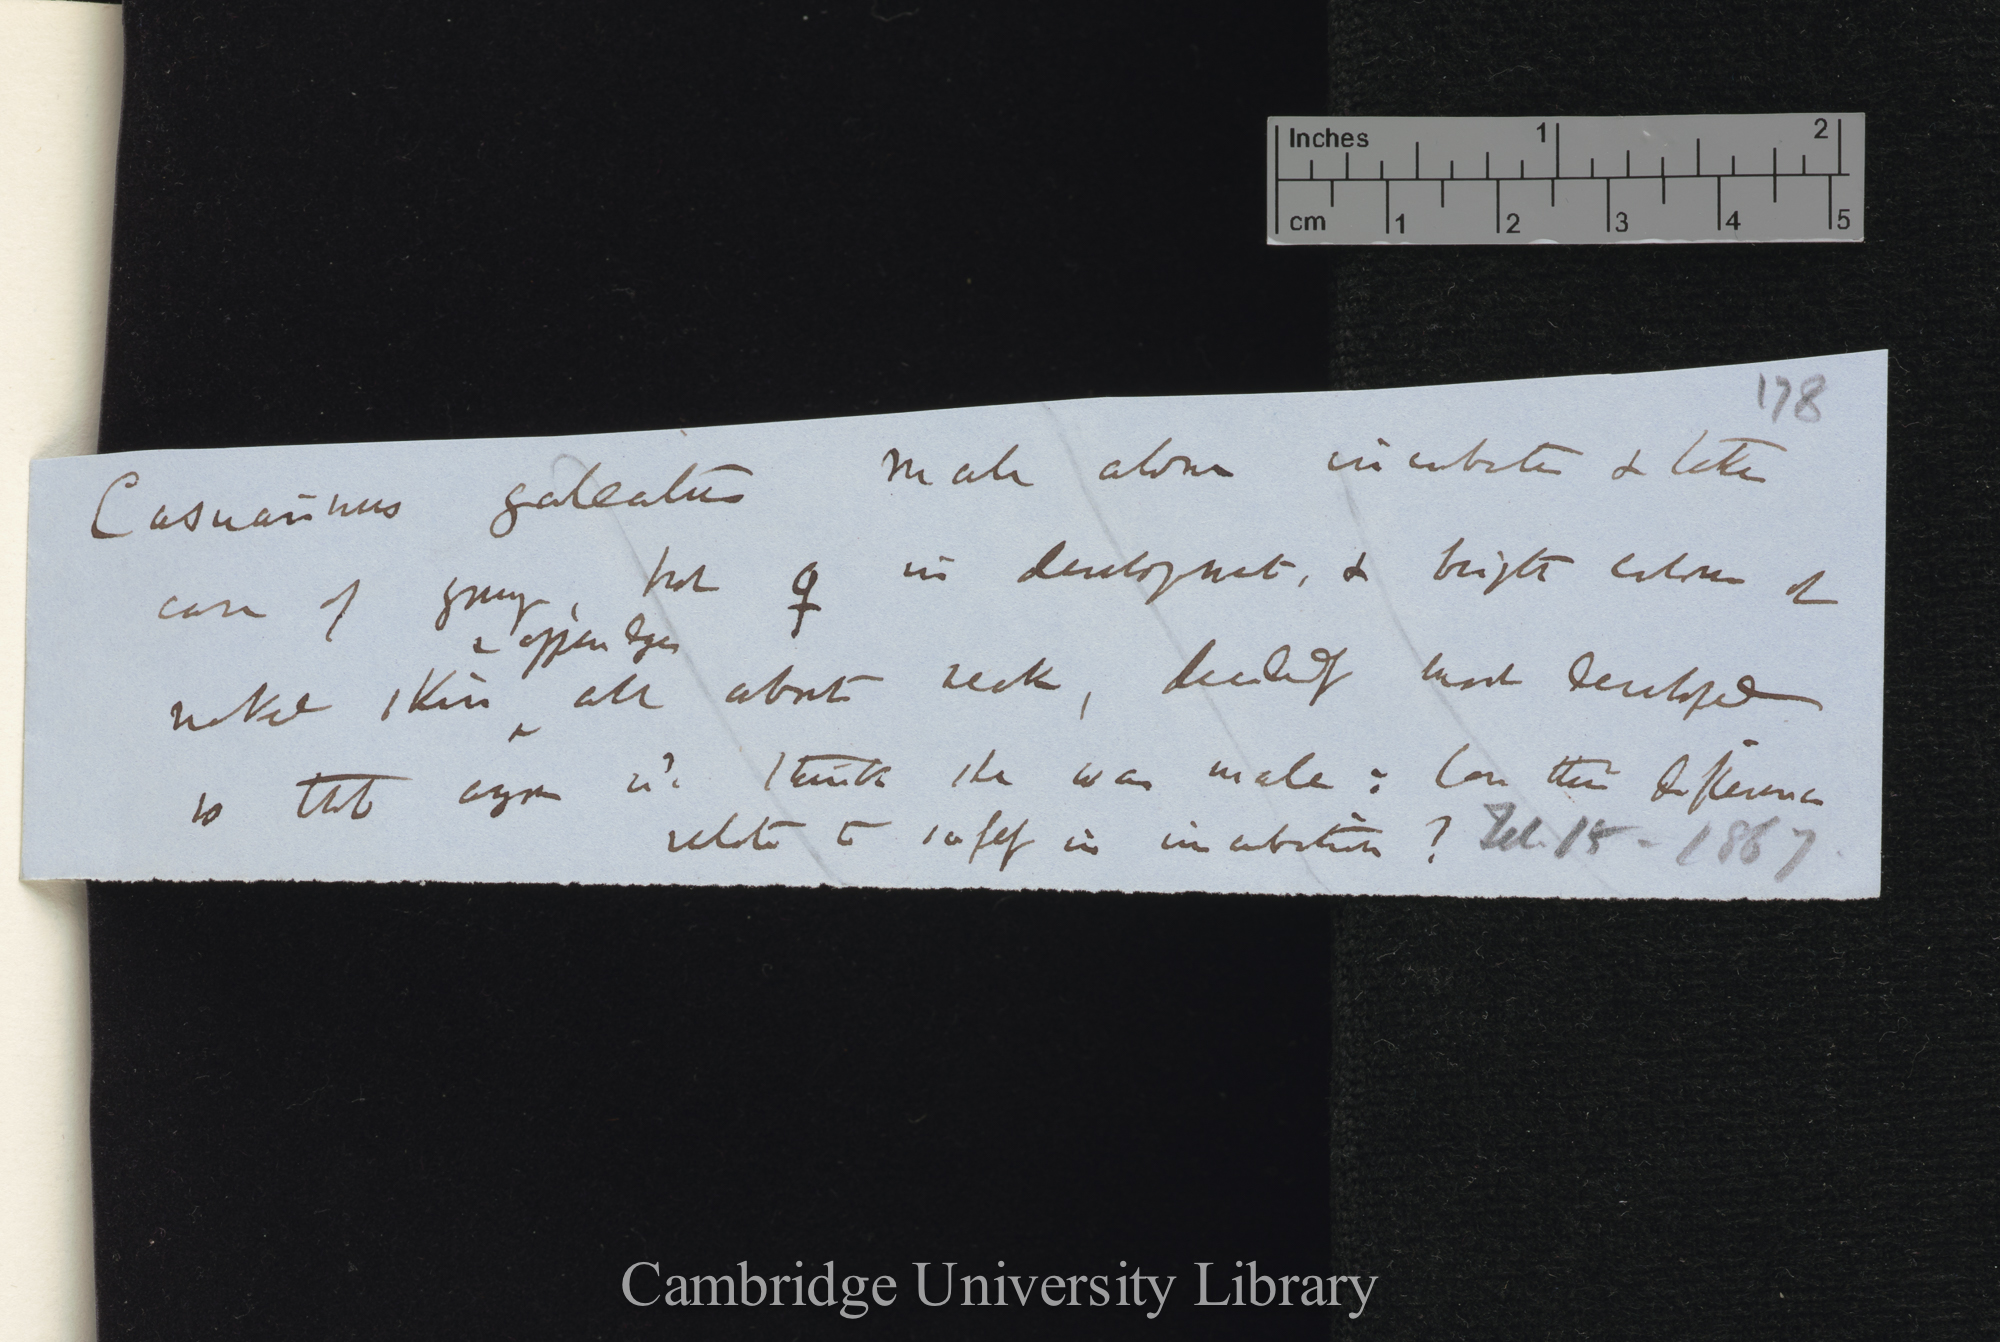 Inches 1 2
cm 1 2 3 4 5
178
Casuarinus galeatus male alone incubates & takes
care of young, but ♀ in development, & bright colours of
& appendages
naked skin ^ all about neck, decidedly most developed
so that anyone wd. think she was male: Can this difference
relate to safety in incubation? Feb. 15 - 1867.
Cambridge University Library